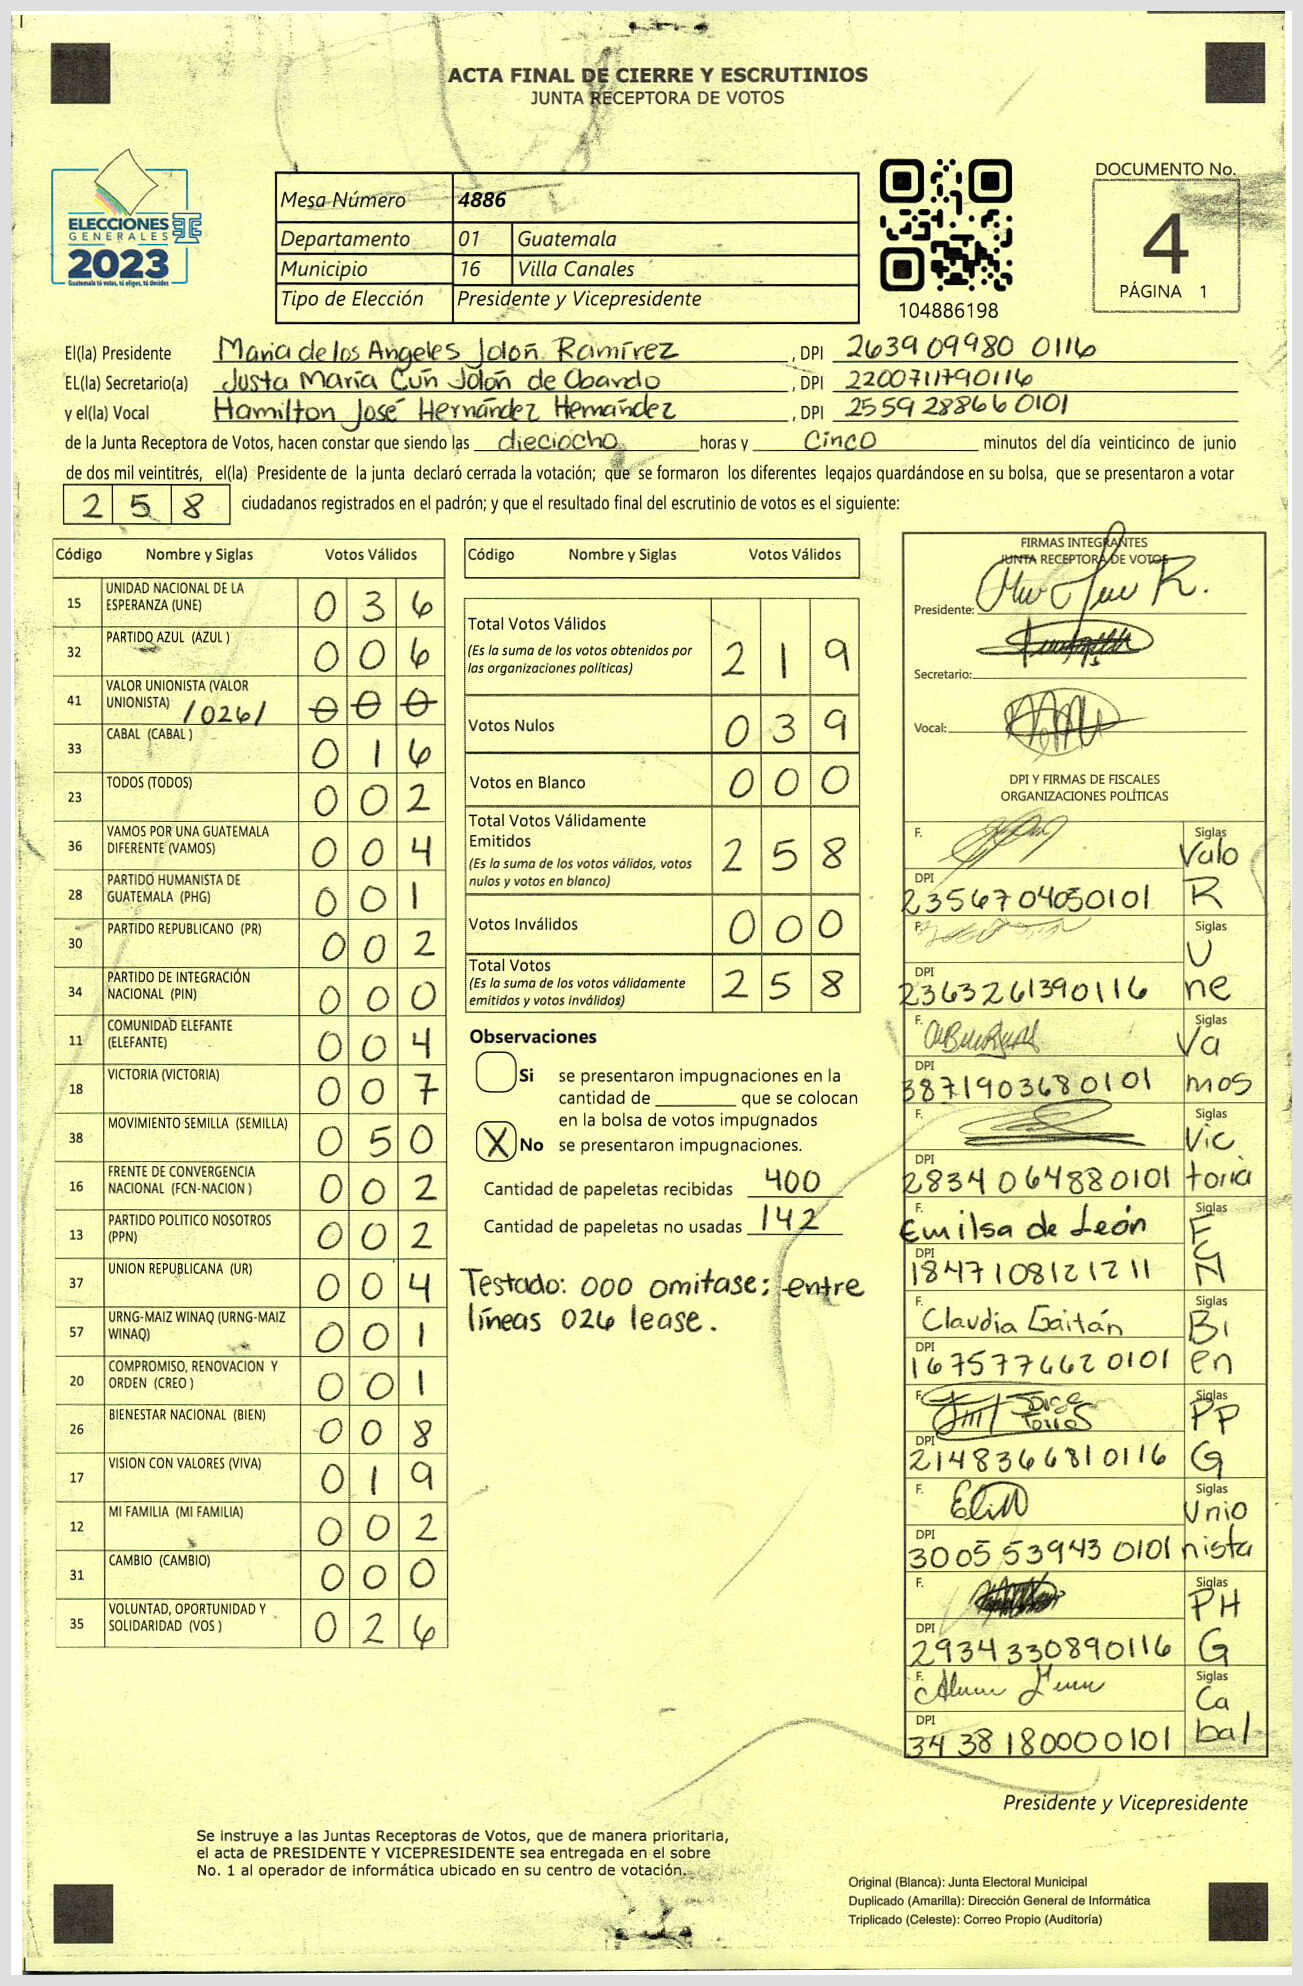 ACTA FINAL DE CIERRE Y ESCRUTINIOS
JUNTA RECEPTORA DE VOTOS
ELECCIONES
GENERALES
2023
Guatemala tú votas, tú eliges, tú decides
Mesa Número 4886
Departamento 01 Guatemala
Municipio 16 Villa Canales
Tipo de Elección Presidente y Vicepresidente
104886198
DOCUMENTO No.
4
PÁGINA 1
El(la) Presidente Maria de los Angeles Jolón Ramírez , DPI 2639 09980 0116
EL(la) Secretario(a) Justa María Cún Jolón de Obando , DPI 2200711790116
y el(la) Vocal Hamilton José Hernández Hernández , DPI 2559 28866 0101
de la Junta Receptora de Votos, hacen constar que siendo las dieciocho horas y cinco minutos del día veinticinco de junio
de dos mil veintitrés, el(la) Presidente de la junta declaró cerrada la votación; que se formaron los diferentes legajos quardándose en su bolsa, que se presentaron a votar
258 ciudadanos registrados en el padrón; y que el resultado final del escrutinio de votos es el siguiente:
Código Nombre y Siglas Votos Válidos
15 UNIDAD NACIONAL DE LA ESPERANZA (UNE) 036
32 PARTIDO AZUL (AZUL ) 006
41 VALOR UNIONISTA (VALOR UNIONISTA) /026/ 000
33 CABAL (CABAL ) 016
23 TODOS (TODOS) 002
36 VAMOS POR UNA GUATEMALA DIFERENTE (VAMOS) 004
28 PARTIDO HUMANISTA DE GUATEMALA (PHG) 001
30 PARTIDO REPUBLICANO (PR) 002
34 PARTIDO DE INTEGRACIÓN NACIONAL (PIN) 000
11 COMUNIDAD ELEFANTE (ELEFANTE) 004
18 VICTORIA (VICTORIA) 007
38 MOVIMIENTO SEMILLA (SEMILLA) 050
16 FRENTE DE CONVERGENCIA NACIONAL (FCN-NACION ) 002
13 PARTIDO POLITICO NOSOTROS (PPN) 002
37 UNION REPUBLICANA (UR) 004
57 URNG-MAIZ WINAQ (URNG-MAIZ WINAQ) 001
20 COMPROMISO, RENOVACION Y ORDEN (CREO ) 001
26 BIENESTAR NACIONAL (BIEN) 008
17 VISION CON VALORES (VIVA) 019
12 MI FAMILIA (MI FAMILIA) 002
31 CAMBIO (CAMBIO) 000
35 VOLUNTAD, OPORTUNIDAD Y SOLIDARIDAD (VOS ) 026
Código Nombre y Siglas Votos Válidos
Total Votos Válidos 219
(Es la suma de los votos obtenidos por
las organizaciones políticas)
Votos Nulos 039
Votos en Blanco 000
Total Votos Válidamente
Emitidos 258
(Es la suma de los votos válidos, votos
nulos y votos en blanco)
Votos Inválidos 000
Total Votos 258
(Es la suma de los votos válidamente
emitidos y votos inválidos)
Observaciones
Si se presentaron impugnaciones en la
cantidad de ________ que se colocan
en la bolsa de votos impugnados
X No se presentaron impugnaciones.
Cantidad de papeletas recibidas 400
Cantidad de papeletas no usadas 142
Testado: 000 omitase; entre
líneas 026 lease.
FIRMAS INTEGRANTES
JUNTA RECEPTORA DE VOTOS
Presidente:
Secretario:
Vocal:
DPI Y FIRMAS DE FISCALES
ORGANIZACIONES POLÍTICAS
F. Siglas Valo R
DPI 2356704050101
F. Siglas Une
DPI 2363261390116
F. Siglas Vamos
DPI 3871903680101
F. Siglas Victoria
DPI 2834064880101
F. Emilsa de León Siglas
DPI 1847108121211
F. Claudia Gaitán Siglas Bien
DPI 1675776620101
F. Jorge Torres Siglas PPG
DPI 2148366810116
F. Siglas Unionista
DPI 3005539430101
F. Siglas PHG
DPI 2934330890116
F. Siglas Cabal
DPI 3438180000101
Presidente y Vicepresidente
Se instruye a las Juntas Receptoras de Votos, que de manera prioritaria,
el acta de PRESIDENTE Y VICEPRESIDENTE sea entregada en el sobre
No. 1 al operador de informática ubicado en su centro de votación.
Original (Blanca): Junta Electoral Municipal
Duplicado (Amarilla): Dirección General de Informática
Triplicado (Celeste): Correo Propio (Auditoría)